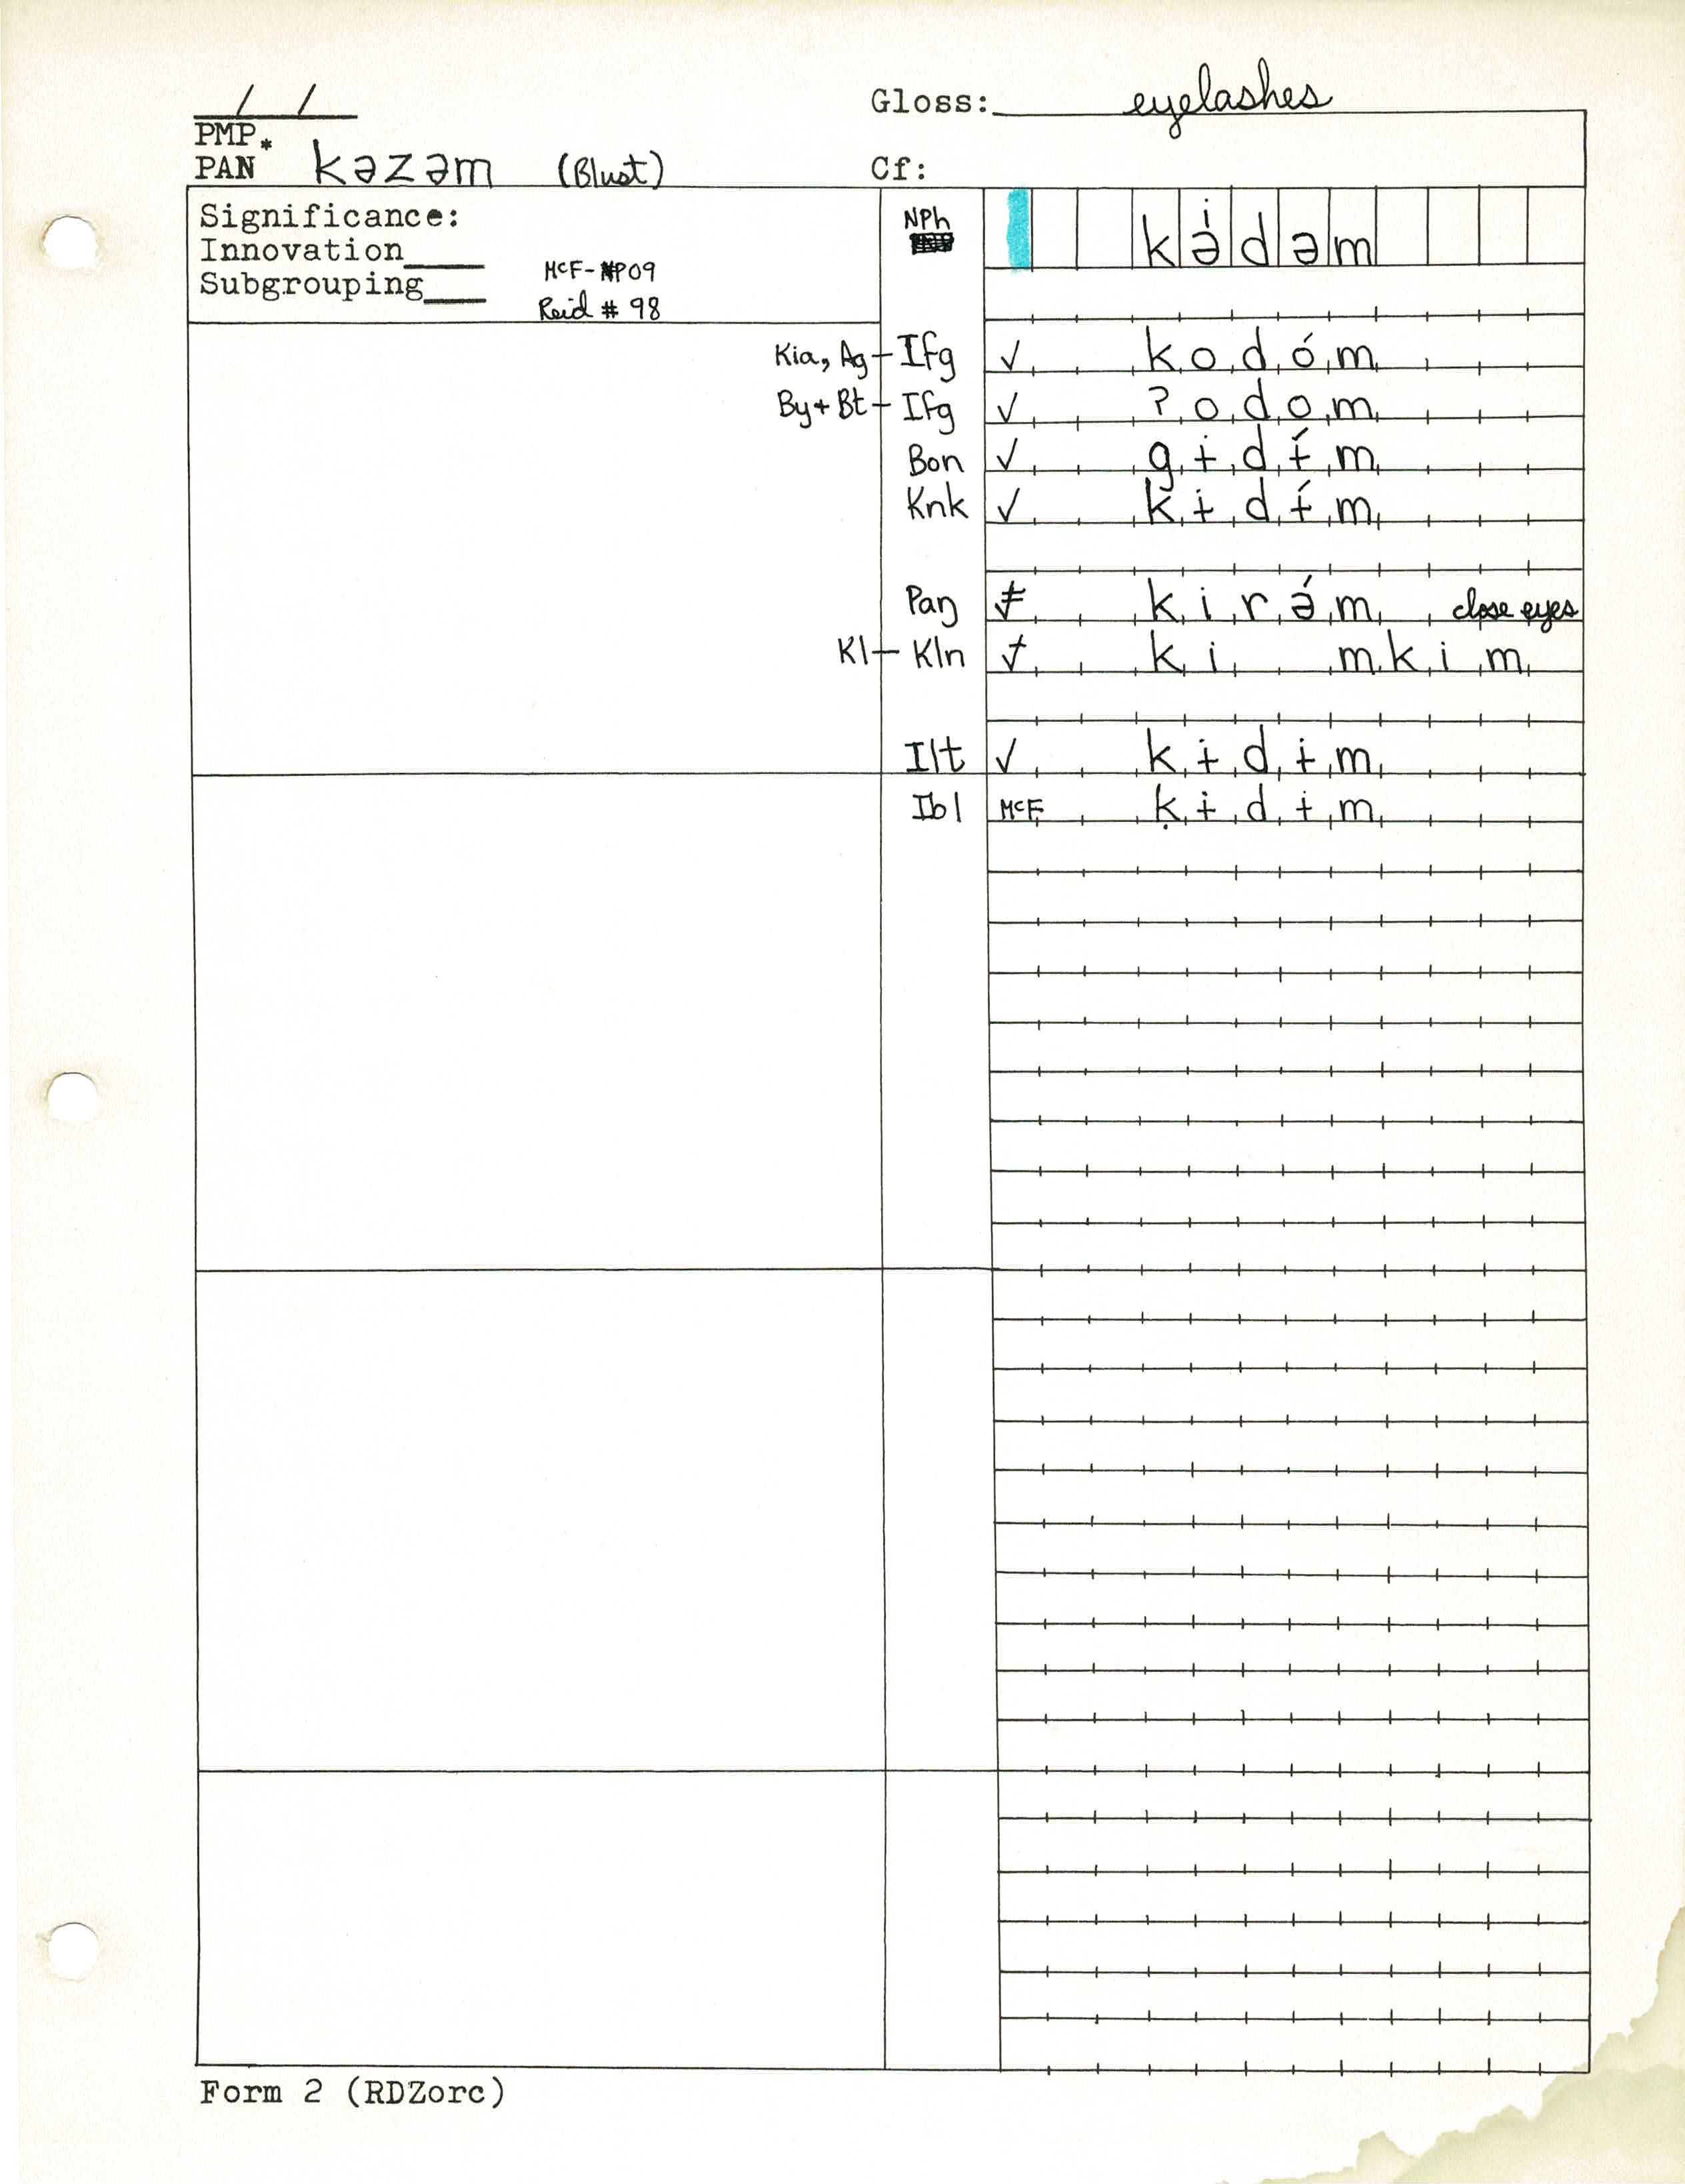 / /
Gloss: eyelashes
PMP *
PAN kəzəm (Blust)
Cf:
Significance:
Innovation____
Subgrouping____
McF-NP09
Reid # 98
NPh
i
k ə d ə m
Kia, Ag - Ifg ✓ k o d ó m
By + Bt - Ifg ✓ ? o d o m
Bon ✓ g ɨ d ɨ́ m
Knk ✓ k ɨ d ɨ́ m
Paŋ ≠ k i r ə́ m close eyes
Kl - Kln ✓ k i m k i m
Ilt ✓ k ɨ d ɨ m
Ibl McF ḳ ɨ d ɨ m
Form 2 (RDZorc)